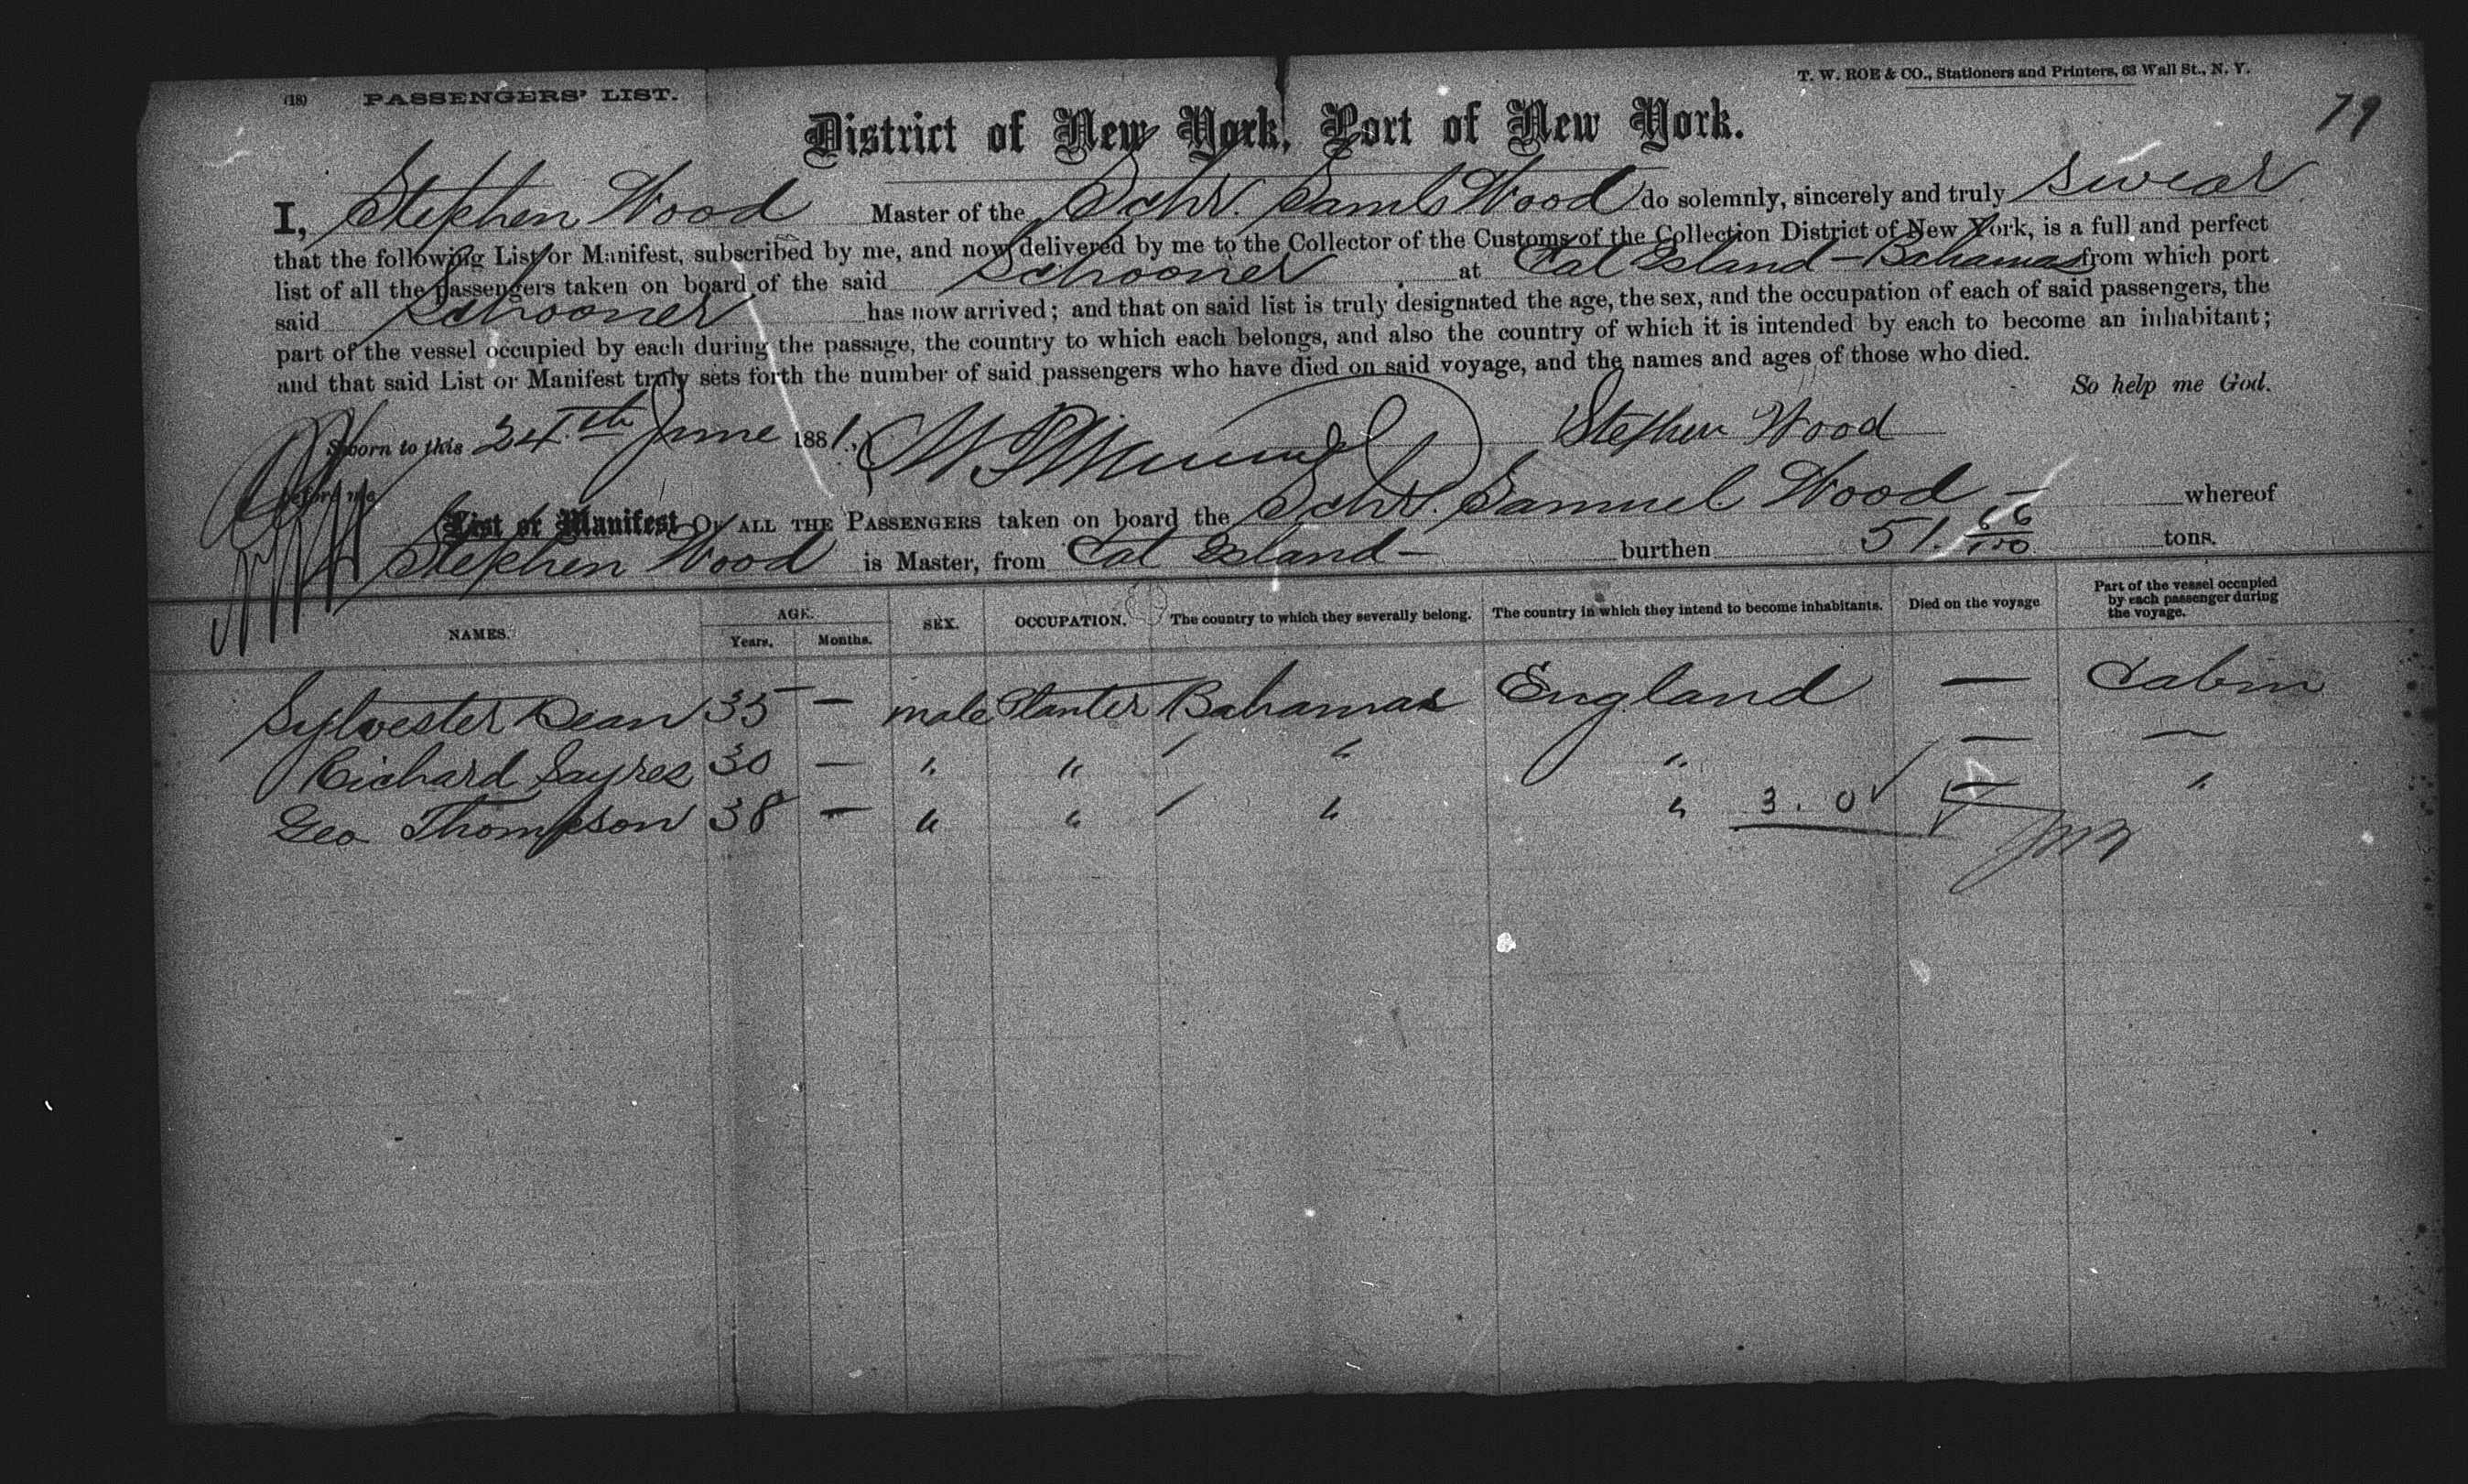 (18) PASSENGERS' LIST.
T. W. ROE & CO., Stationers and Printers, 63 Wall St., N. Y.
79
District of New York, Port of New York.
I, Stephen Wood Master of the Schr. Saml Wood do solemnly, sincerely and truly swear
that the following List or Manifest, subscribed by me, and now delivered by me to the Collector of the Customs of the Collection District of New York, is a full and perfect
list of all the passengers taken on board of the said Schooner at Cat Island - Bahamas from which port
said Schooner has now arrived; and that on said list is truly designated the age, the sex, and the occupation of each of said passengers, the
part of the vessel occupied by each during the passage, the country to which each belongs, and also the country of which it is intended by each to become an inhabitant;
and that said List or Manifest truly sets forth the number of said passengers who have died on said voyage, and the names and ages of those who died.
So help me God.
Sworn to this 24th June 1881. Stephen Wood
before me
List or Manifest OF ALL THE PASSENGERS taken on board the Schr. Samuel Wood - whereof
Stephen Wood is Master, from Cat Island - burthen 51. 66/100 tons.
NAMES. AGE. Years. Months. SEX. OCCUPATION. The country to which they severally belong. The country in which they intend to become inhabitants. Died on the voyage Part of the vessel occupied by each passenger during the voyage.
Sylvester Dean 35 — male Planter Bahamas England — Cabin
Richard Sayres 30 — " " " " — —
Geo Thompson 38 — " " " " 3. 0 — "